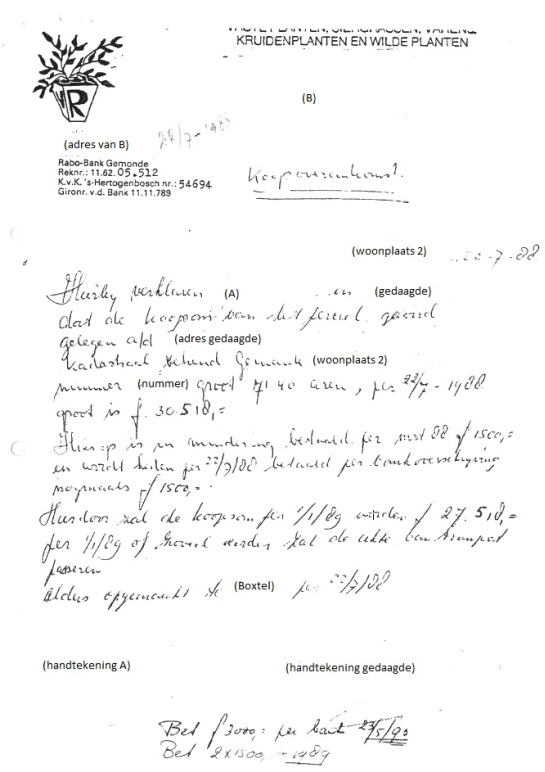 VASTE PLANTEN, SIERGRASSEN, VARENS,
KRUIDENPLANTEN EN WILDE PLANTEN
R
(B)
(adres van B)
22/7-1988
Rabo-Bank Gemonde
Reknr.: 11.62.05.512
K.v.K. 's-Hertogenbosch nr.: 54694
Gironr. v.d. Bank 11.11.789
Koopovereenkomst.
(woonplaats 2) 22-7-88
Hierbij verklaren (A) en (gedaagde)
dat de koopsom van het perceel grond
gelegen a/d (adres gedaagde)
Kadastraal bekend Gemeente (woonplaats 2)
nummer (nummer) groot 71.40 aren, per 22/7-1988
groot is f. 30.518,=
Hierop is in mindering betaald per mrt 88 f 1500,=
en wordt heden per 22/7/88 betaald per bankoverschrijving
nogmaals f 1500,=
Hierdoor zal de koopsom per 1/1/89 worden f 27.518,=
per 1/1/89 of zoveel eerder zal de akte van transport
passeren
Aldus opgemaakt te (Boxtel) per 22/7/88
(handtekening A) (handtekening gedaagde)
Bet f 3000,= per bank 23/5/90
Bet 2x1500,- 1989